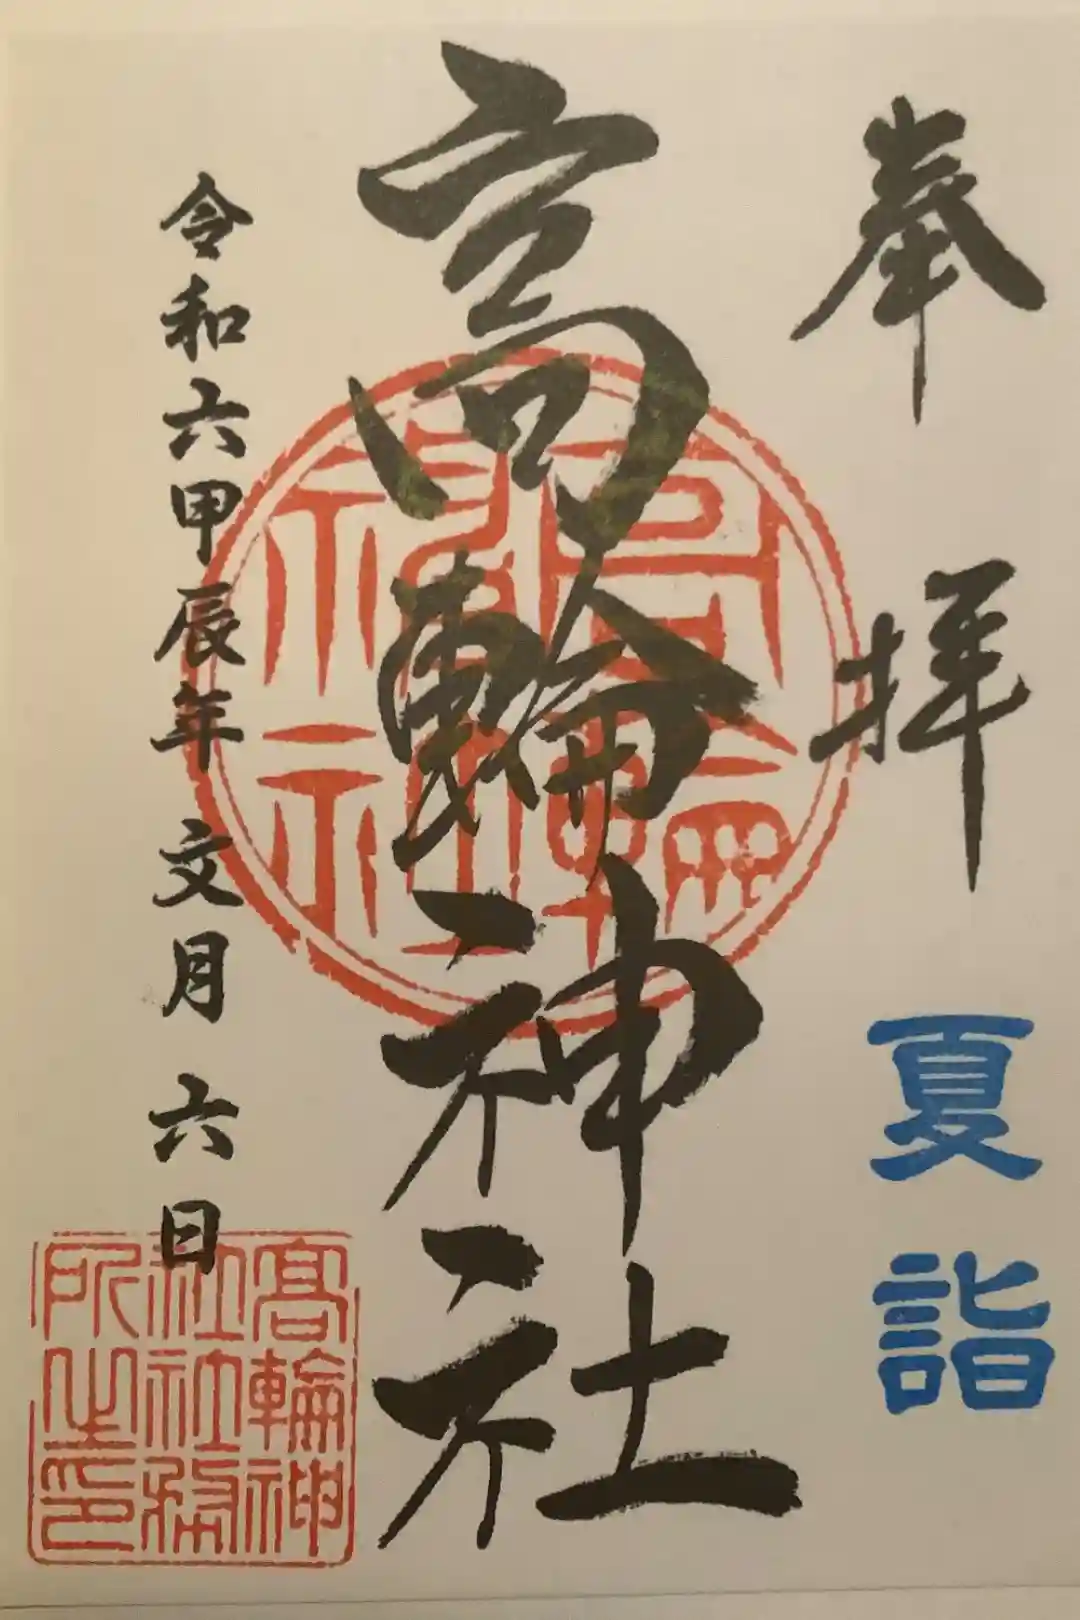 奉拝
夏詣
高輪神社
高輪神社
令和六甲辰年文月六日
高輪神
社社務
所之印